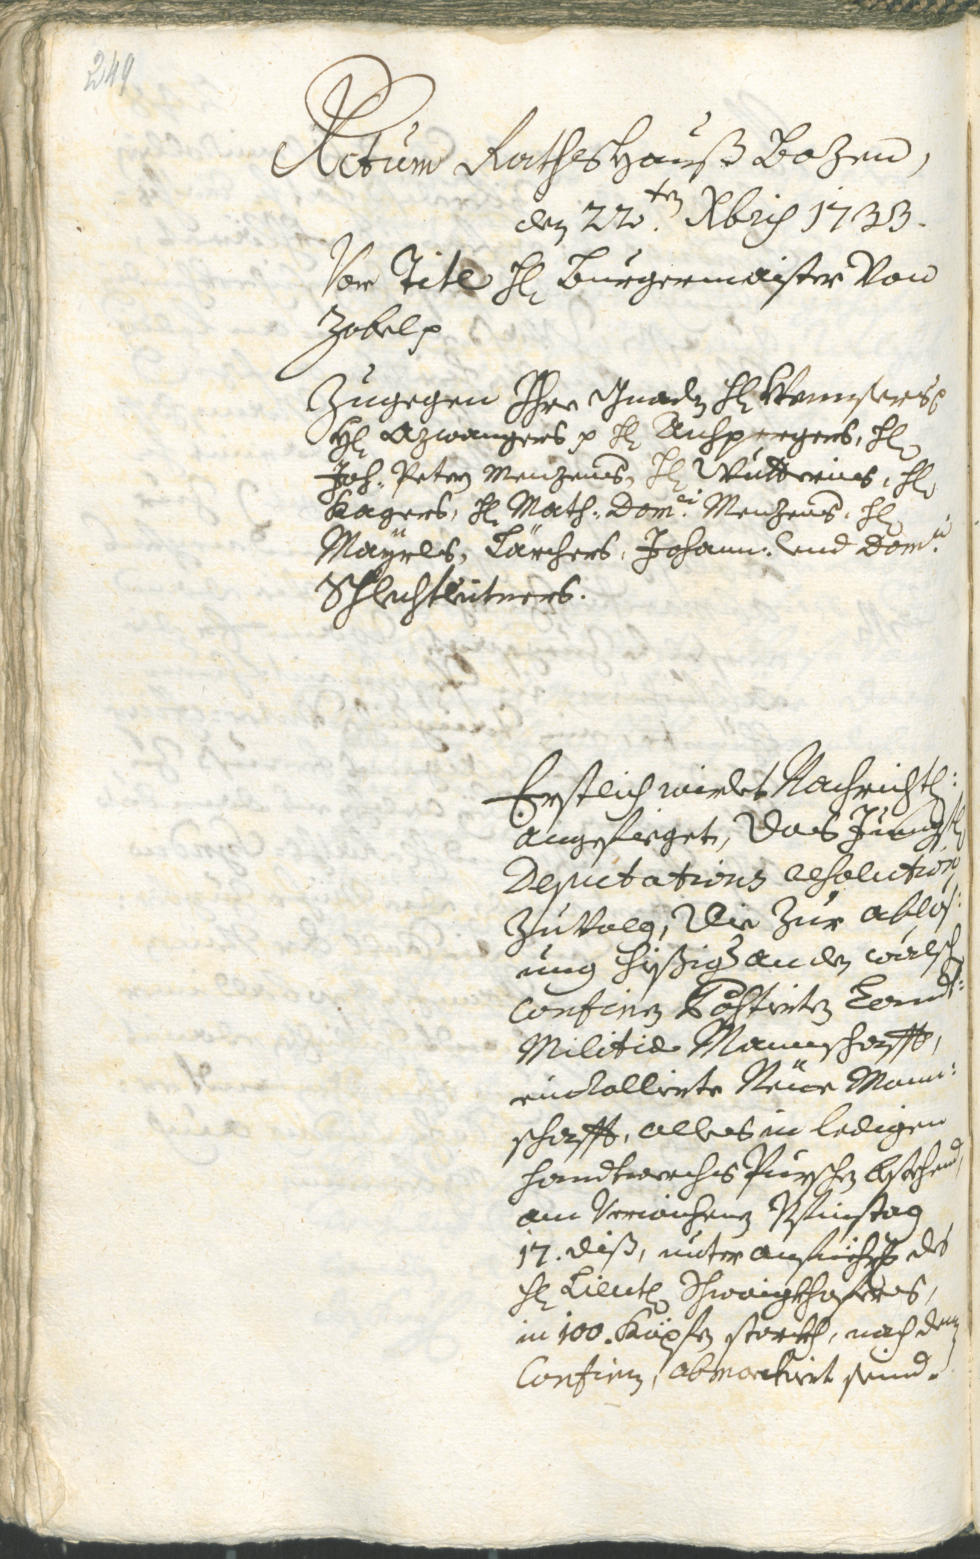 249
Actum RathsHauß Bozen,
den 22.ten Xbris 1733.
Vor Titl H: Burgermaister Von
Zobel p
Zugegen Ihro Gnaden H:
H: Azwangers p H: H:
Joh. Peter Menzens, H: H:
Kagers, H: Math: Dom: Menzens, H:
Mayrls, Lärchers, Johann: und Dom:
Schlechtleitners.
Erstlich wirdet Nachrichtl:
angefieget, das Jüngst
Deputations resolution
zu Volg, die zur ablös:
ung hießig an den wälsch
Confinen Postirten Landt:
Militia Mannschafft,
einrollirte Neüe Mann:
schafft, alles in ledigen
handtwerchs Purschen bestehend,
am Verwichenen Pfinstag
17. diß, unter anfüehrung des
H: Lieut: Schwaigkhofers,
in 100. Köpfen starckh, nach den
Confinen, abmarchirt seind.